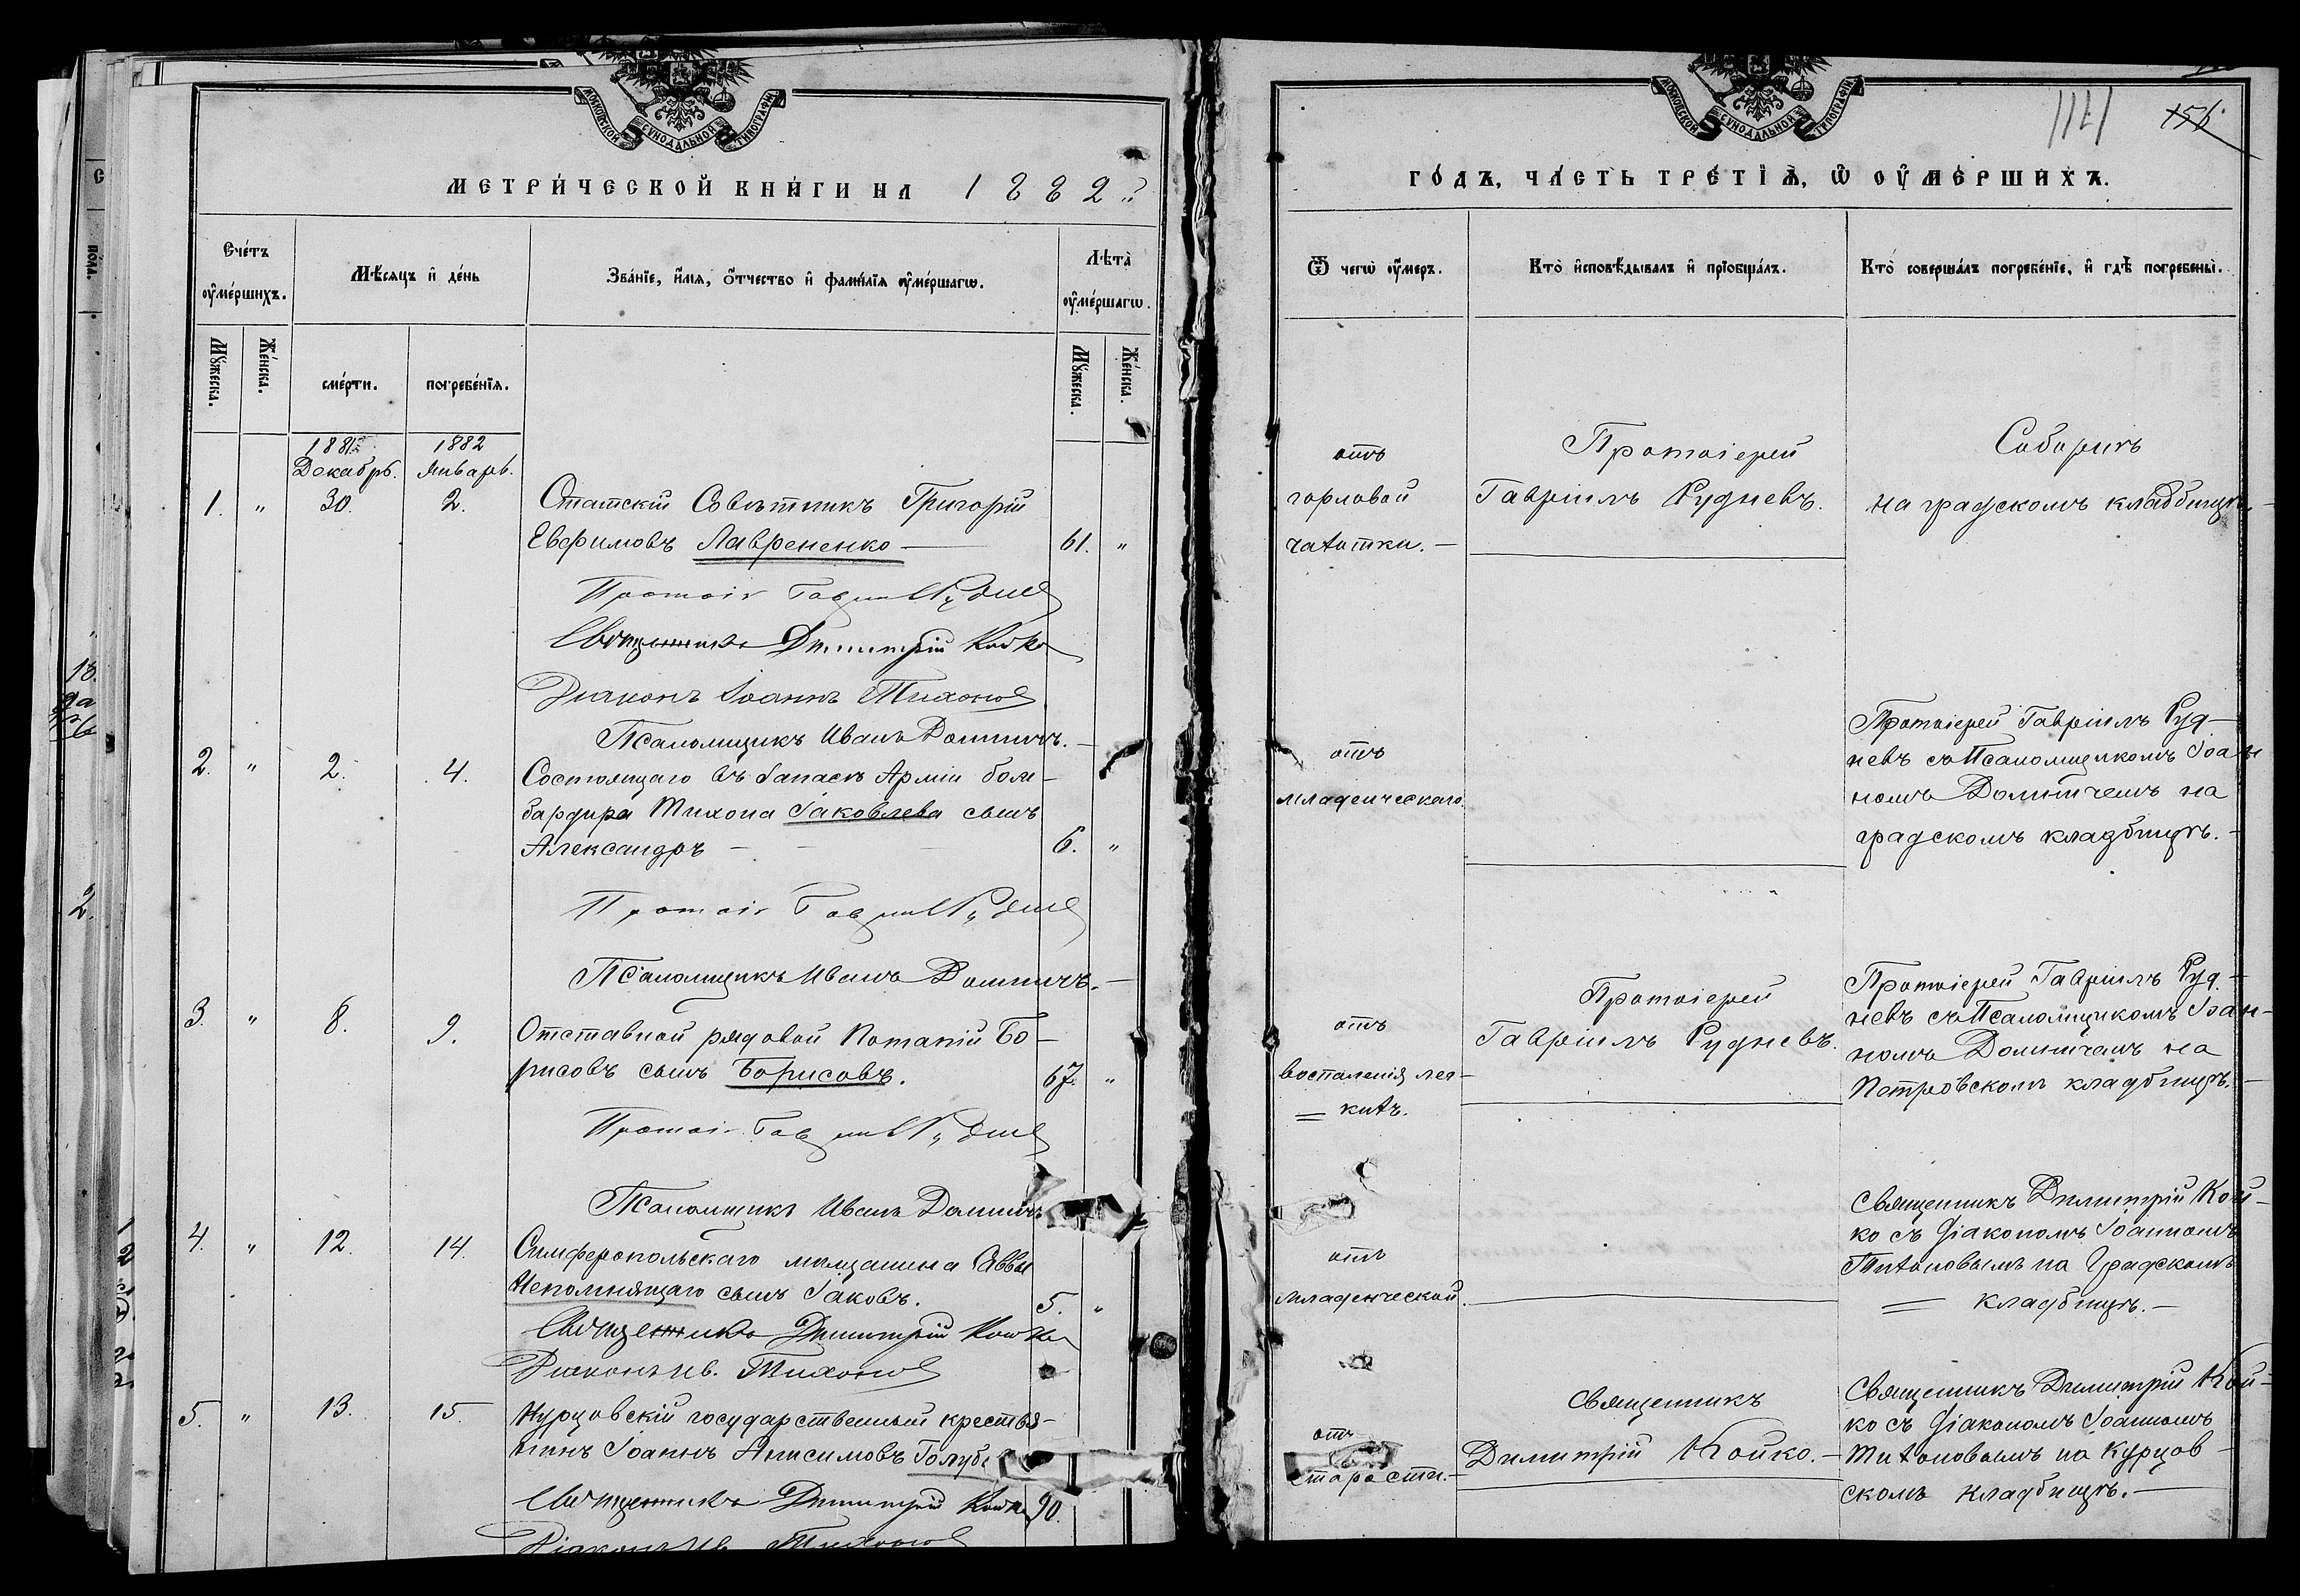 МОСКОВСКОЙ СѴНОДАЛЬНОЙ ТИПОГРАФІИ
МЕТРИ́ЧЕСКОЙ КНИ́ГИ НА 1882
Сче́тъ ᲂу҆ме́ршихъ.
Мѣ́сяцъ и҆ де́нь
Зва́нїе, и҆́мѧ, ѻ҆́тчество и҆ фами́лїѧ ᲂу҆ме́ршагѡ.
Лѣ́та ᲂу҆ме́ршагѡ.
Мꙋ́жеска.
Же́нска.
сме́рти.
погребе́нїѧ.
Мꙋ́жеска.
Же́нска.
1881 1882
Декабрь. Январь.
1. " 30. 2. Статскій Совѣтникъ Григорій
Евфимовъ Лаврененко — 61. "
Священникъ Димитрій Койко
Діаконъ Іоаннъ Тихонов
Псаломщикъ Иванъ Долиничъ.
2. " 2. 4. Состоящаго въ Запасѣ Арміи бом-
бардира Тихона Іаковлева сынъ
Александръ — 6. "
Псаломщикъ Иванъ Долиничъ.
3. " 8. 9. Отставной рядовой Потапій Бо-
рисовъ сынъ Борисовъ. 67. "
Псаломщикъ Иванъ Долиничъ
4. " 12. 14. Симферопольскаго мѣщанина Саввы
Непомнящаго сынъ Іаковъ. 5. "
Священникъ Димитрій Койко
Діаконъ Ив. Тихонов
5. " 13. 15. Курцовскій государственный крестья-
нинъ Іоаннъ Анисимовъ Голубе
Священникъ Димитрій Койко 90.
Діаконъ Ив. Тихонов
МОСКОВСКОЙ СѴНОДАЛЬНОЙ ТИПОГРАФІИ
156.
ГО́ДЪ, ЧА́СТЬ ТРЕ́ТЇѦ, Ѡ҆ ОУ҆МЕ́РШИХЪ.
Ѿ чегѡ̀ ᲂу҆́меръ.
Кто̀ и҆сповѣ́дывалъ и҆ прїобща́лъ.
Кто̀ соверша́лъ погребе́нїе, и҆ гдѣ̀ погребены̀.
отъ
горловой
чахотки. —
Протоіерей
Гавріилъ Рудневъ.
Соборнѣ
на градскомъ кладбищѣ.
отъ
младенческаго.
Протоіерей Гавріилъ Руд-
невъ съ Псаломщикомъ Іоан
номъ Долиничемъ на
градскомъ кладбищѣ. —
отъ
воспаленія лег-
= кихъ.
Протоіерей
Гавріилъ Рудневъ.
Протоіерей Гавріилъ Руд-
невъ съ Псаломщикомъ Іоан-
номъ Долиничемъ на
Петровскомъ кладбищѣ. —
отъ
младенческой.
Священникъ Димитрій Кой-
ко съ Діакономъ Іоанномъ
Тихоновымъ на Градскомъ
= кладбищѣ. —
отъ
старости. —
Священникъ
Димитрій Койко. —
Священникъ Димитрій Кой-
ко съ Діакономъ Іоанномъ
Тихоновымъ на Курцов-
скомъ кладбищѣ. —